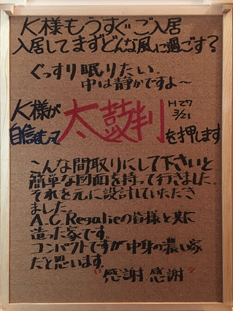 K様もうすぐご入居
入居してまずどんな風に過ごす?
ぐっすり眠りたい。
中は静かですよ〜
K様が
自信をもって太鼓判を押します
H27
3/21
こんな間取りにして下さいと
簡単な図面を持って行きました。
それを元に設計していただき
ました。
A.C Regalieの皆様と共に
造った家です。
コンパクトですが中身の濃い家
だと思います。
"感謝 感謝"